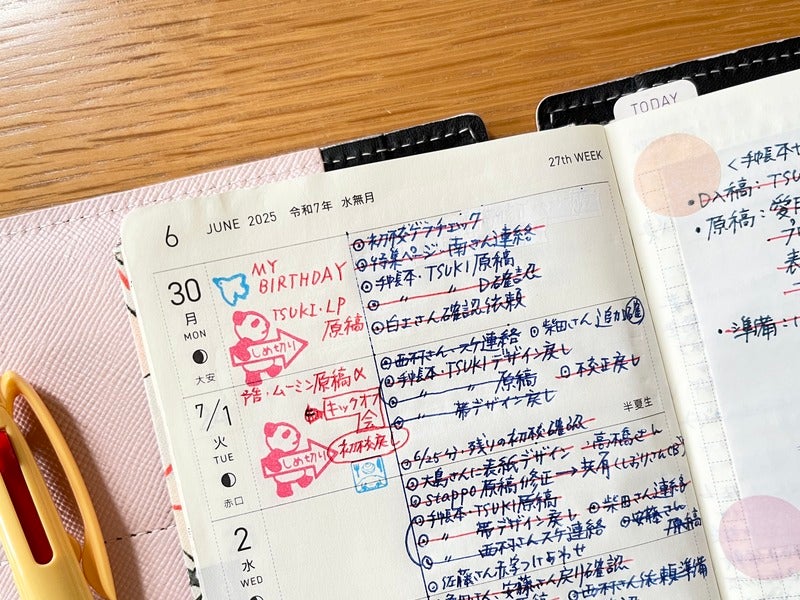 TODAY
27th WEEK
6 JUNE 2025 令和7年 水無月
30
月
MON
大安
MY
BIRTHDAY
TSUKI・LP
原稿
しめ切り
初校ゲラチェック
特集ページ・南さん連絡
手帳本・TSUKI原稿
〃 〃 D確認
白玉さん確認依頼
7/1
火
TUE
赤口
半夏生
ムーミン原稿
キックオフ
会
初校戻し
しめ切り
西村さん・スケ連絡
柴田さん追加
手帳本・TSUKIデザイン戻し
〃 〃 原稿
〃 帯デザイン戻し
2
水
WED
6/25分・残りの初校確認
高橋さん
大島さんに表紙デザイン
stappo原稿修正→共有
手帳本・TSUKI原稿
柴田さん連絡
〃 帯デザイン戻し
安藤さん
原稿
〃 西村さんスケ連絡
佐藤さん赤字つけあわせ
安藤さん戻り確認
西村さん依頼準備
<手帳本
・D入稿：TSU
・原稿：愛用
表
・準備：